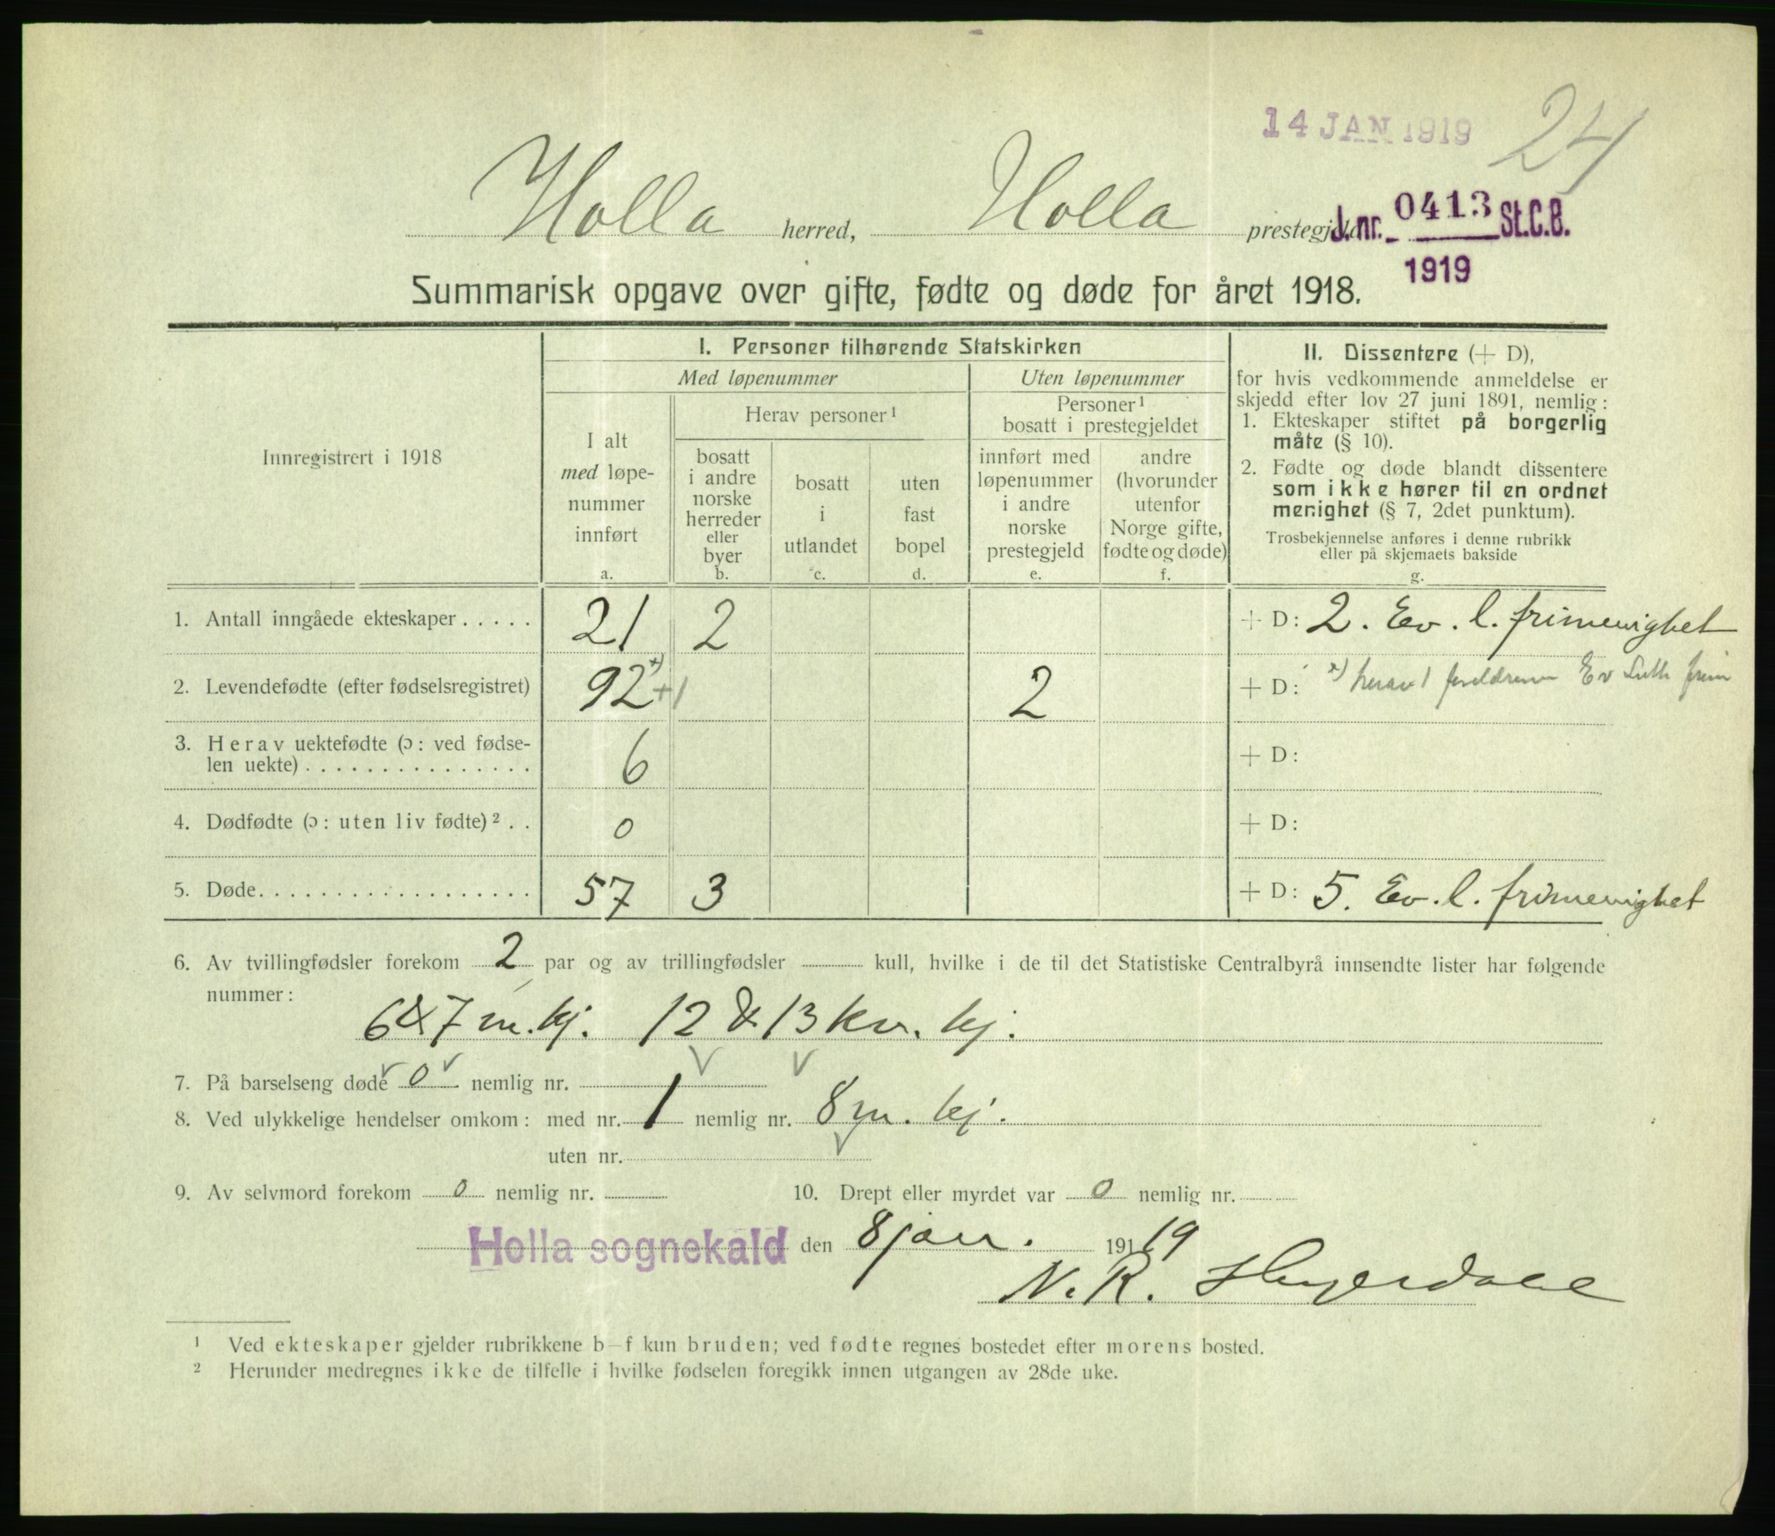 14 JAN 1919
24
Holla herred, Holla prestegjeld
J.nr. 0413 St.C.B.
1919
Summarisk opgave over gifte, fødte og døde for året 1918.
Innregistrert i 1918
I. Personer tilhørende Statskirken
Med løpenummer
Uten løpenummer
I alt
med løpe-
nummer
innført
a.
Herav personer ¹
bosatt
i andre
norske
herreder
eller
byer
b.
bosatt
i
utlandet
c.
uten
fast
bopel
d.
Personer ¹
bosatt i prestegjeldet
innført med
løpenummer
i andre
norske
prestegjeld
e.
andre
(hvorunder
utenfor
Norge gifte,
fødte og døde)
f.
II. Dissentere (+ D),
for hvis vedkommende anmeldelse er
skjedd efter lov 27 juni 1891, nemlig:
1. Ekteskaper stiftet på borgerlig
måte (§ 10).
2. Fødte og døde blandt dissentere
som ikke hører til en ordnet
menighet (§ 7, 2det punktum).
Trosbekjennelse anføres i denne rubrikk
eller på skjemaets bakside
g.
1. Antall inngåede ekteskaper . . . . . 21 2 + D: 2. Ev. l. frimenighet
2. Levendefødte (efter fødselsregistret) 92 *) +1 2 + D: *) herav 1 foreldrene Ev Luth frim
3. Herav uektefødte (ɔ: ved fødse-
len uekte) . . . . . . . . . . . . . . . 6 + D:
4. Dødfødte (ɔ: uten liv fødte) ² . . 0 + D:
5. Døde. . . . . . . . . . . . . . . . . . 57 3 + D: 5. Ev. l. frimenighet
6. Av tvillingfødsler forekom 2 par og av trillingfødsler kull, hvilke i de til det Statistiske Centralbyrå innsendte lister har følgende
nummer:
6 & 7 m. kj. 12 & 13 kv. kj.
7. På barselseng døde 0 nemlig nr.
8. Ved ulykkelige hendelser omkom: med nr. 1 nemlig nr. 8 m. kj.
uten nr.
9. Av selvmord forekom 0 nemlig nr. 10. Drept eller myrdet var 0 nemlig nr.
Holla sognekald den 8 jan. 191 19
N. R.
¹ Ved ekteskaper gjelder rubrikkene b—f kun bruden; ved fødte regnes bostedet efter morens bosted.
² Herunder medregnes ikke de tilfelle i hvilke fødselen foregikk innen utgangen av 28de uke.